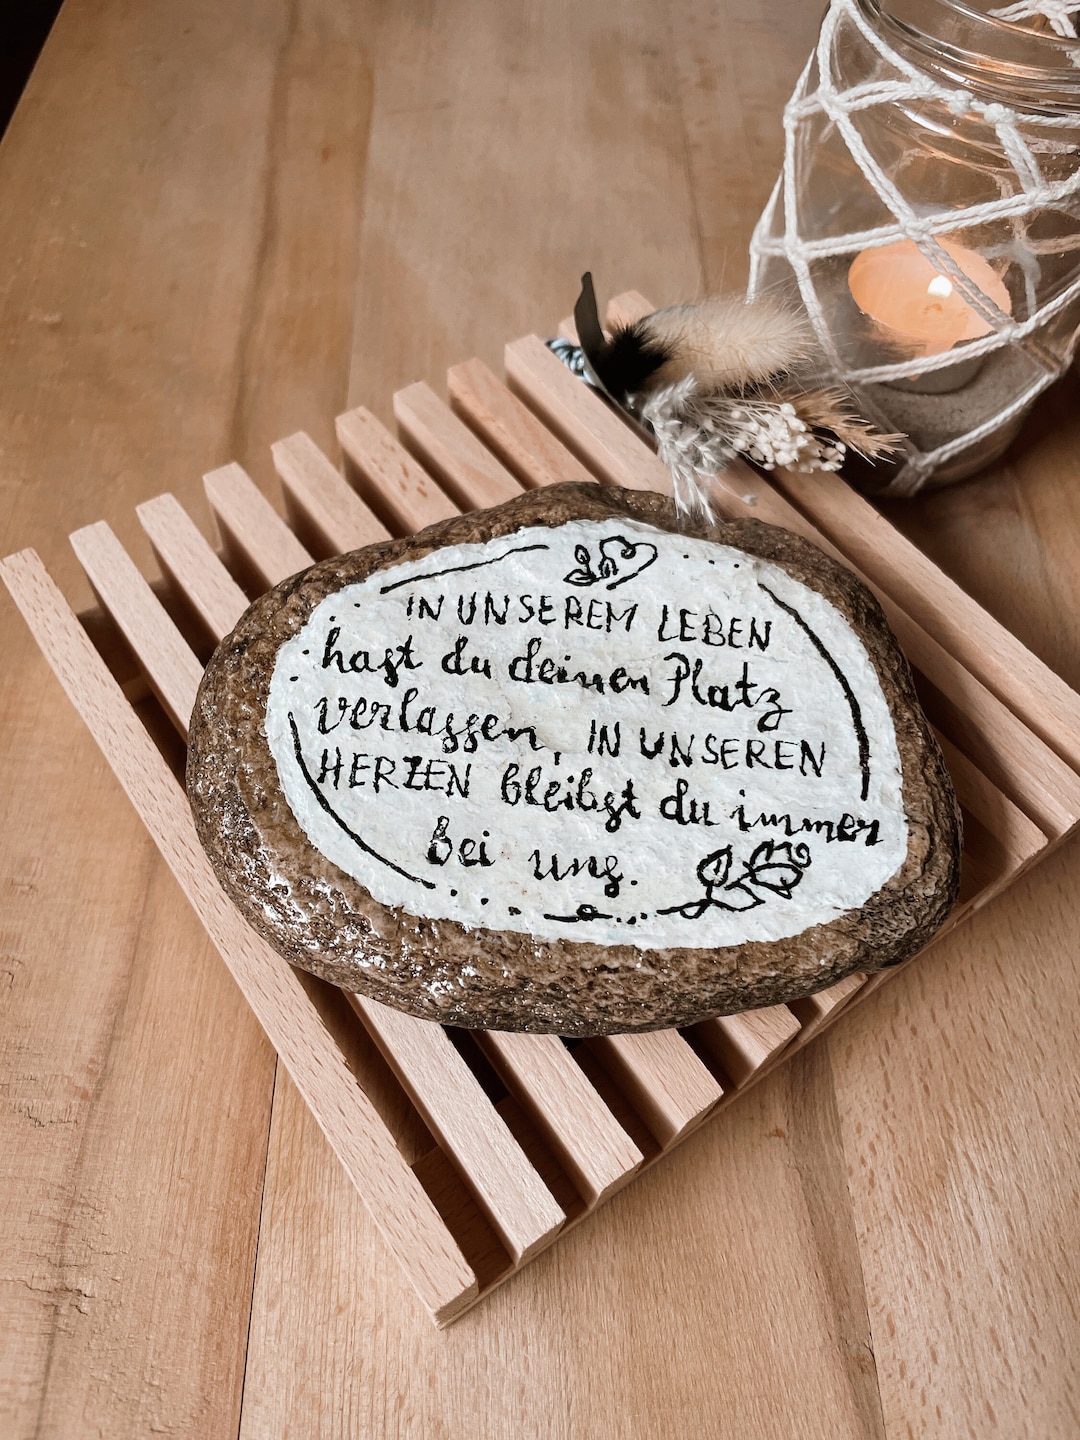 IN UNSEREM LEBEN
hast du deinen Platz
verlassen, IN UNSEREN
HERZEN bleibst du immer
bei uns.